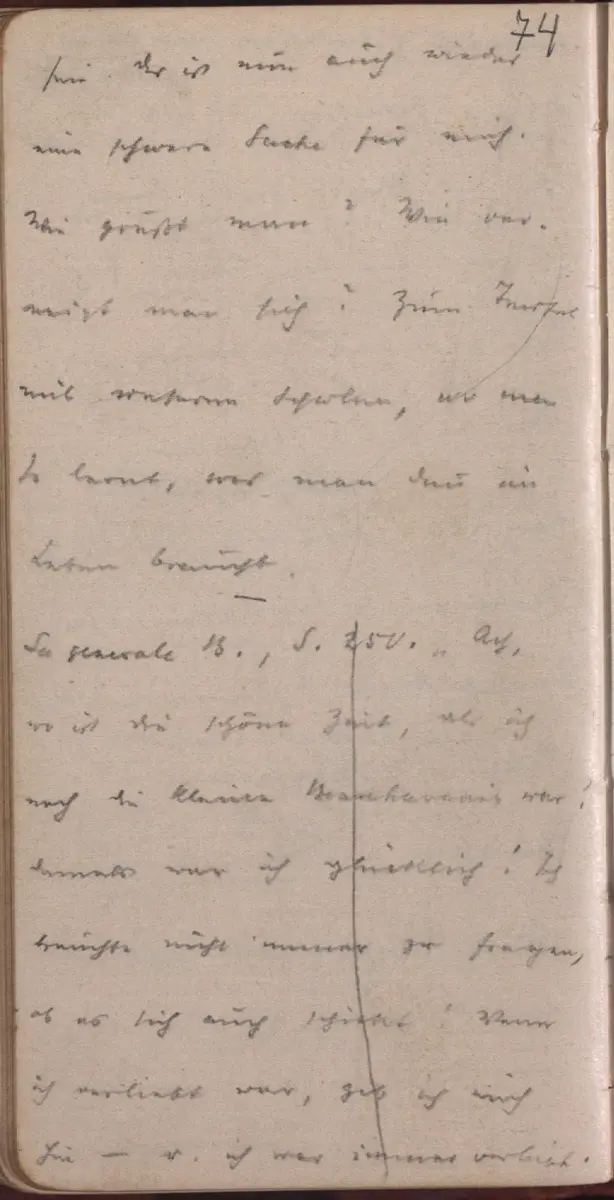 74
sein. Das ist nun auch wieder
eine schwere Sache für mich.
Wie grüßt man? Wie ver-
neigt man sich? Zum Teufel
mit unseren Schulen, wo man
so lernt, was man dann im
Leben braucht.
La generale B., S. 250. „Ach,
wo ist die schöne Zeit, als ich
noch die kleine Beauharnais war!
damals war ich glücklich! Ich
brauchte nicht immer zu fragen,
ob es sich auch schickt! Wenn
ich verliebt war, gab ich mich
hin – u. ich war immer verliebt.